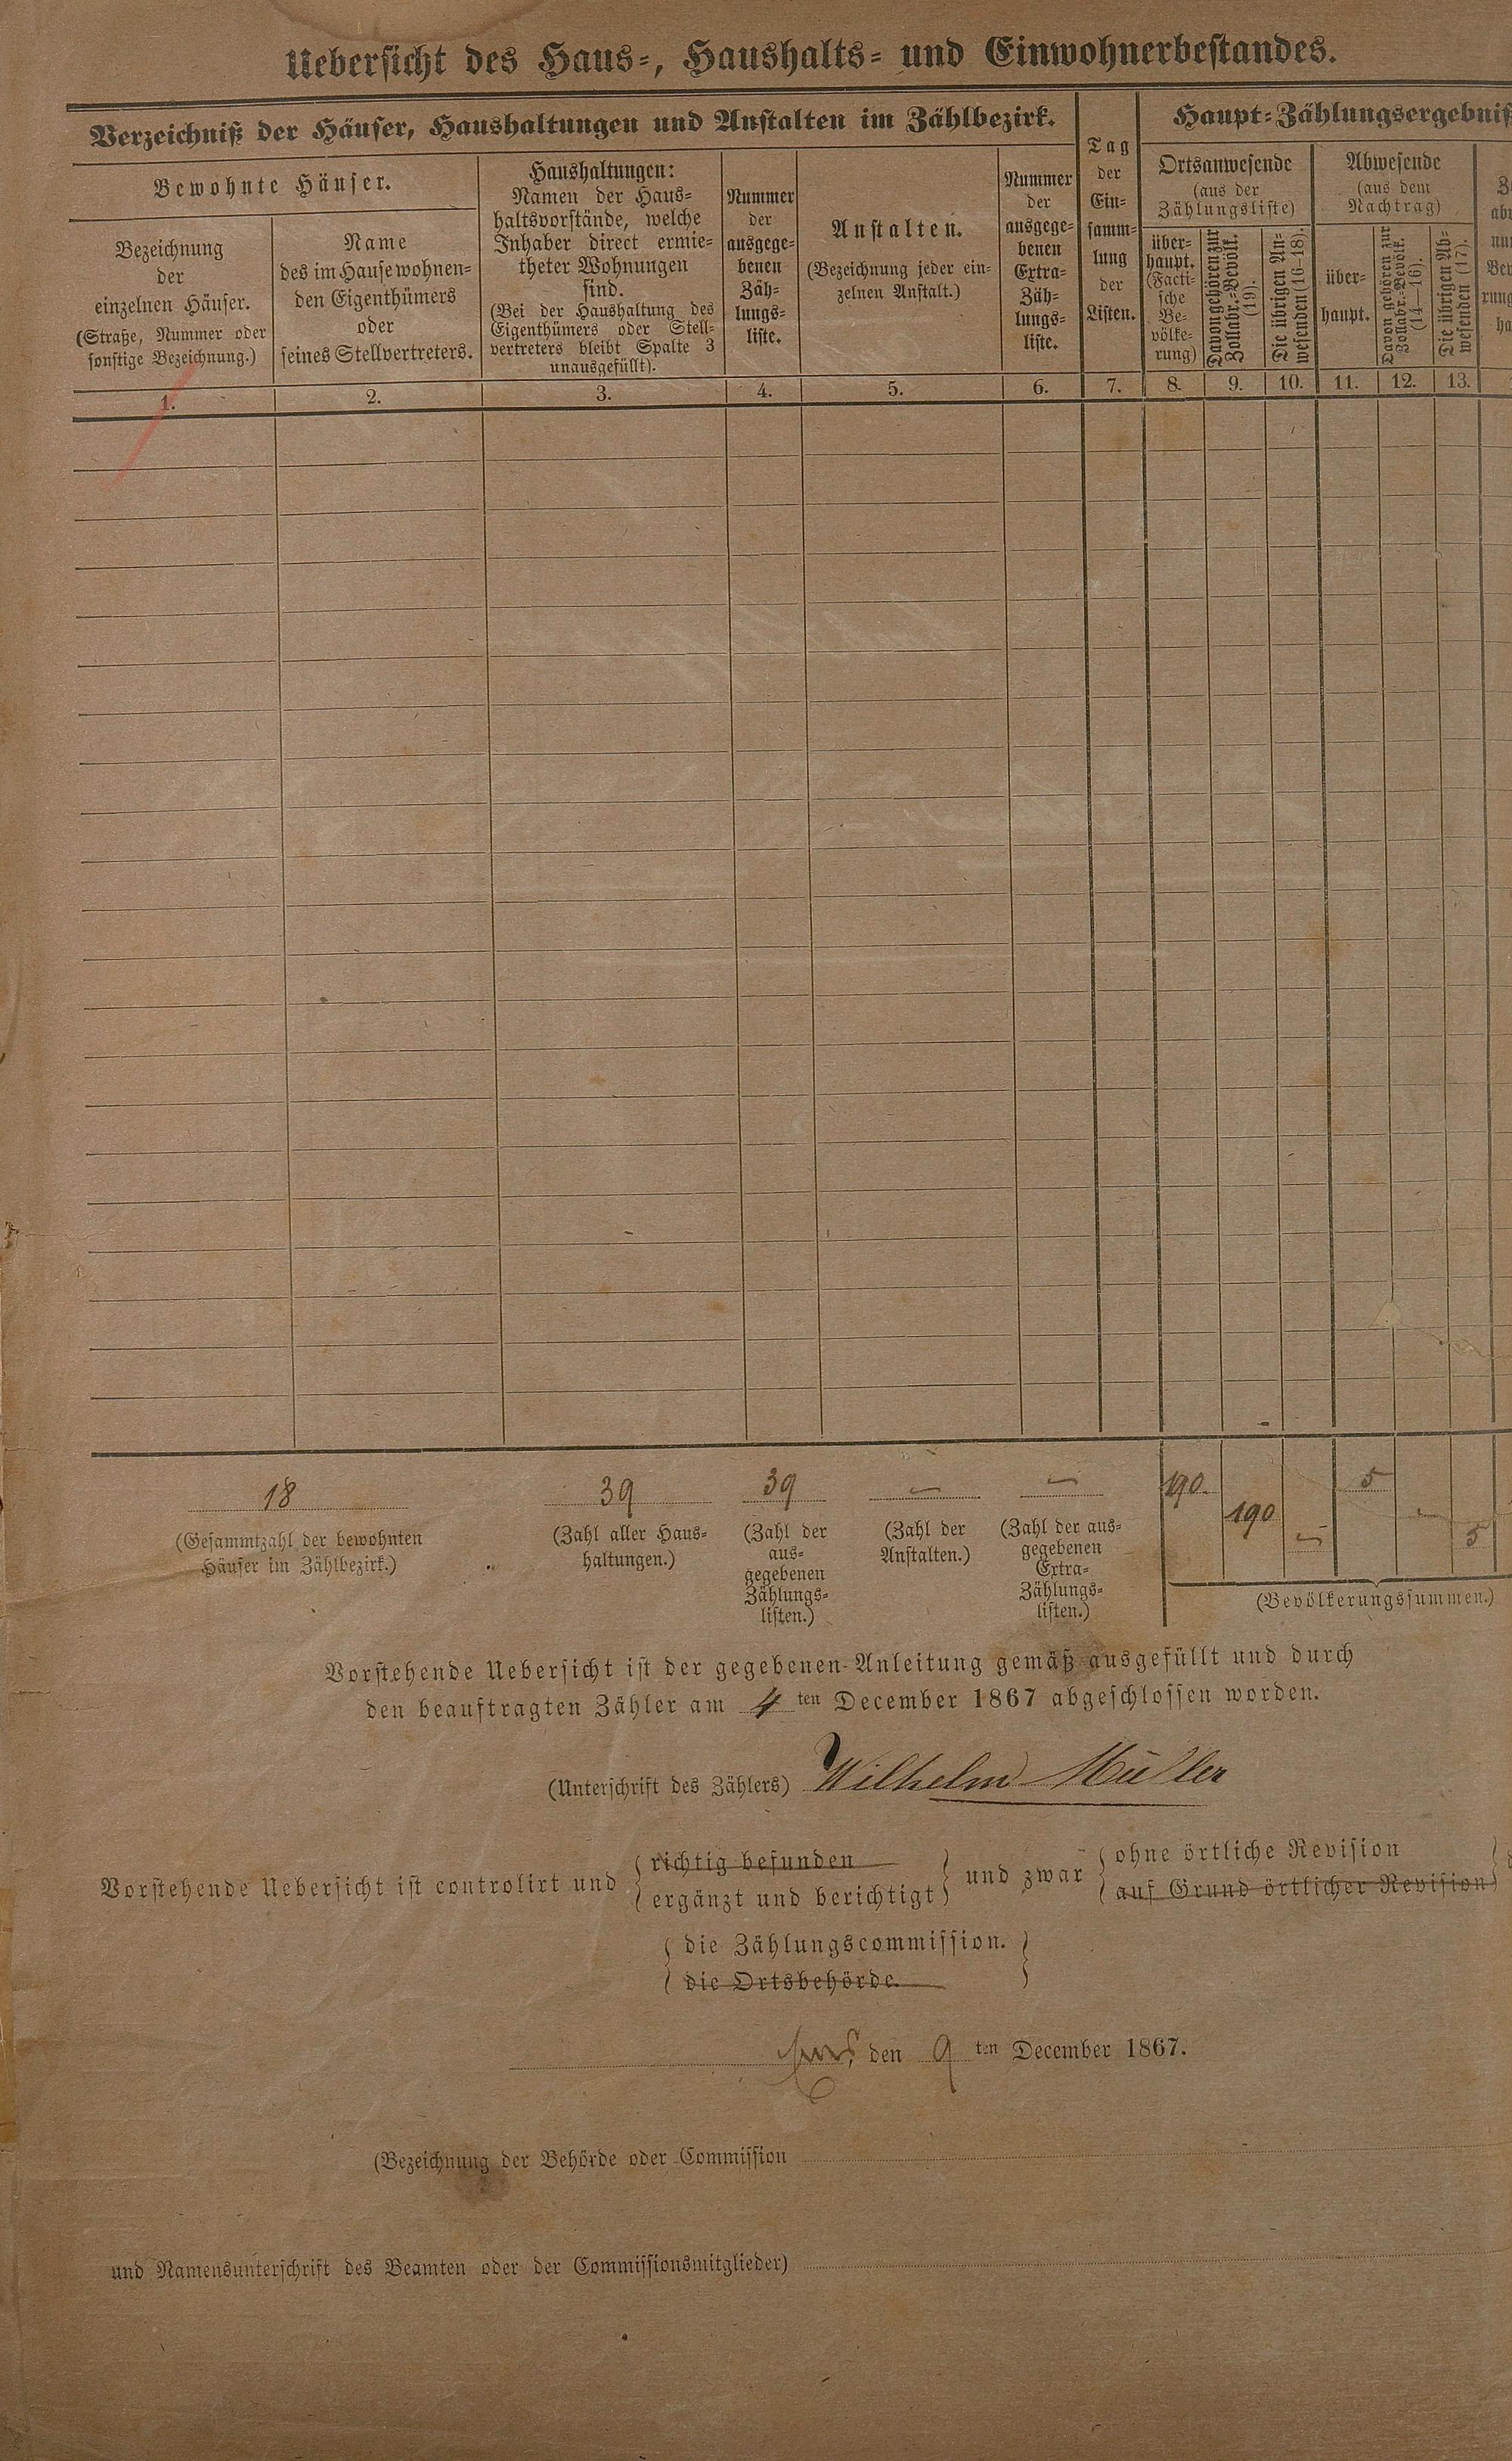 Uebersicht des Haus-, Haushalts- und Einwohnerbestandes.
Verzeichniß der Häuser, Haushaltungen und Anstalten im Zählbezirk.
Bewohnte Häuser.
Bezeichnung
der
einzelnen Häuser.
(Straße, Nummer oder
sonstige Bezeichnung.)
Name
des im Hause wohnen-
den Eigenthümers
oder
seines Stellvertreters.
Haushaltungen:
Namen der Haus-
haltsvorstände, welche
Inhaber direct ermie-
theter Wohnungen
sind.
(Bei der Haushaltung des
Eigenthümers oder Stell-
vertreters bleibt Spalte 3
unausgefüllt).
Nummer
der
ausgege-
benen
Zäh-
lungs-
liste.
Anstalten.
(Bezeichnung jeder ein-
zelnen Anstalt.)
Nummer
der
ausgege-
benen
Extra-
Zäh-
lungs-
liste.
Tag
der
Ein-
samm-
lung
der
Listen.
Haupt-Zählungsergebniß
Ortsanwesende
(aus der
Zählungsliste)
über-
haupt.
(Facti-
sche
Be-
völke-
rung)
Davon gehören zur
Zollabr.-Bevölk.
(19).
Die übrigen An-
wesenden (16-18).
Abwesende
(aus dem
Nachtrag)
über-
haupt.
Davon gehören zur
Zollabr.-Bevölk.
(14—16).
Die übrigen Ab-
wesenden (17).
1. 2. 3. 4. 5. 6. 7. 8. 9. 10. 11. 12. 13.
18 39 39 — — 190. 190 — 5 — 5
(Gesammtzahl der bewohnten
Häuser im Zählbezirk.)
(Zahl aller Haus-
haltungen.)
(Zahl der
aus-
gegebenen
Zählungs-
listen.)
(Zahl der
Anstalten.)
(Zahl der aus-
gegebenen
Extra-
Zählungs-
listen.)
(Bevölkerungssummen.)
Vorstehende Uebersicht ist der gegebenen Anleitung gemäß ausgefüllt und durch
den beauftragten Zähler am 4 ten December 1867 abgeschlossen worden.
(Unterschrift des Zählers) Wilhelm Müller
Vorstehende Uebersicht ist controlirt und { richtig befunden ergänzt und berichtigt } und zwar { ohne örtliche Revision auf Grund örtlicher Revision }
{ die Zählungscommission.
die Ortsbehörde. }
den 9 ten December 1867.
(Bezeichnung der Behörde oder Commission
und Namensunterschrift des Beamten oder der Commissionsmitglieder)